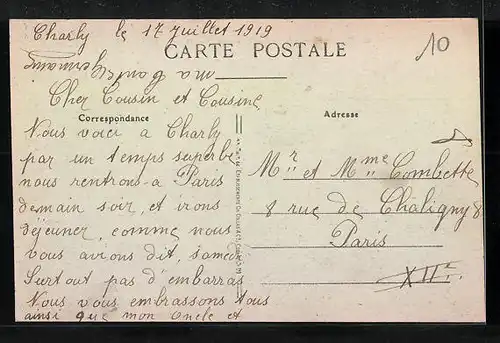 Charly le 17 Juillet 1919
CARTE POSTALE
10
ma
Cher Cousin et Cousine
Correspondance
Adresse
Nous voici a Charly
par un temps superbe
nous rentrons a Paris
demain soir, et irons
déjeuner, comme nous
vous avions dit, samedi
Surtout pas d'embarras
Nous vous embrassons tous
ainsi que mon Oncle et
Mr et Mme Combette
8 rue de Chaligny 8
Paris
XIIe